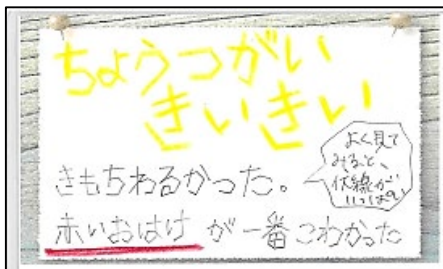 ちょうつがい
きいきい
きもちわるかった。
よく見て
みると、
伏線が
いっぱい
赤いおばけ が一番こわかった